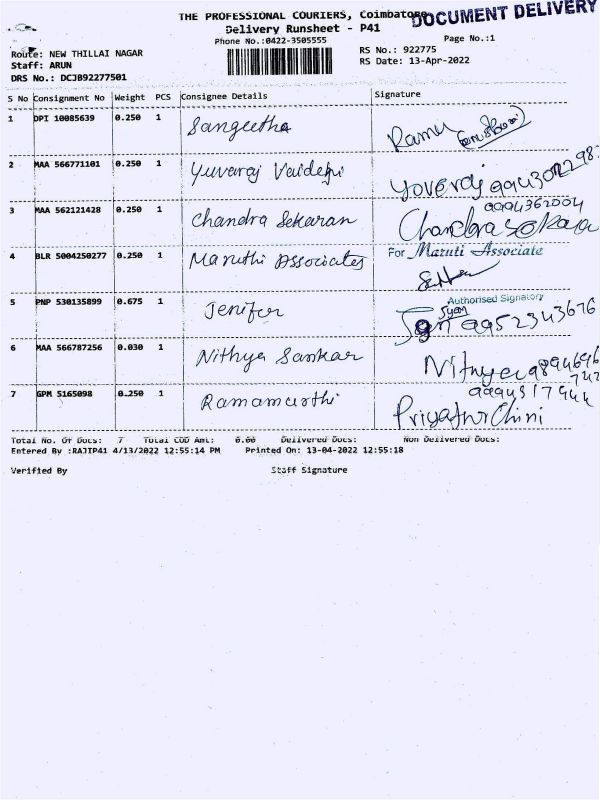 THE PROFESSIONAL COURIERS, Coimbatore
DOCUMENT DELIVERY
Delivery Runsheet - P41
Phone No.:0422-3505555
Page No.:1
Route: NEW THILLAI NAGAR
RS No.: 922775
Staff: ARUN
RS Date: 13-Apr-2022
DRS No.: DCJB92277501
S No Consignment No Weight PCS Consignee Details Signature
1 DPI 10085639 0.250 1 Sangeetha Ramu
2 MAA 566771101 0.250 1 Yuvaraj Vaidehi Yoveraj
3 MAA 562121428 0.250 1 Chandra Sekaran 9994362004
Chandra Sekara
4 BLR 5004250277 0.250 1 Maruthi Associates For Maruti Associate
Authorised Signatory
5 PNP 530135899 0.675 1 Jenifer 9952343676
6 MAA 566787256 0.030 1 Nithya Sankar Nithya
7 GPM 5165098 0.250 1 Ramamurthi
Total No. Of Docs: 7 Total COD Amt: 0.00 Delivered Docs: Non Delivered Docs:
Entered By :RAJIP41 4/13/2022 12:55:14 PM Printed On: 13-04-2022 12:55:18
Verified By Staff Signature